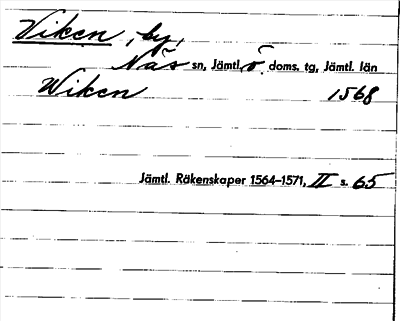 Viken, by,
Näs sn, Jämtl. ö. doms. tg, Jämtl. län
Wiken 1568
Jämtl. Räkenskaper 1564–1571, II s. 65